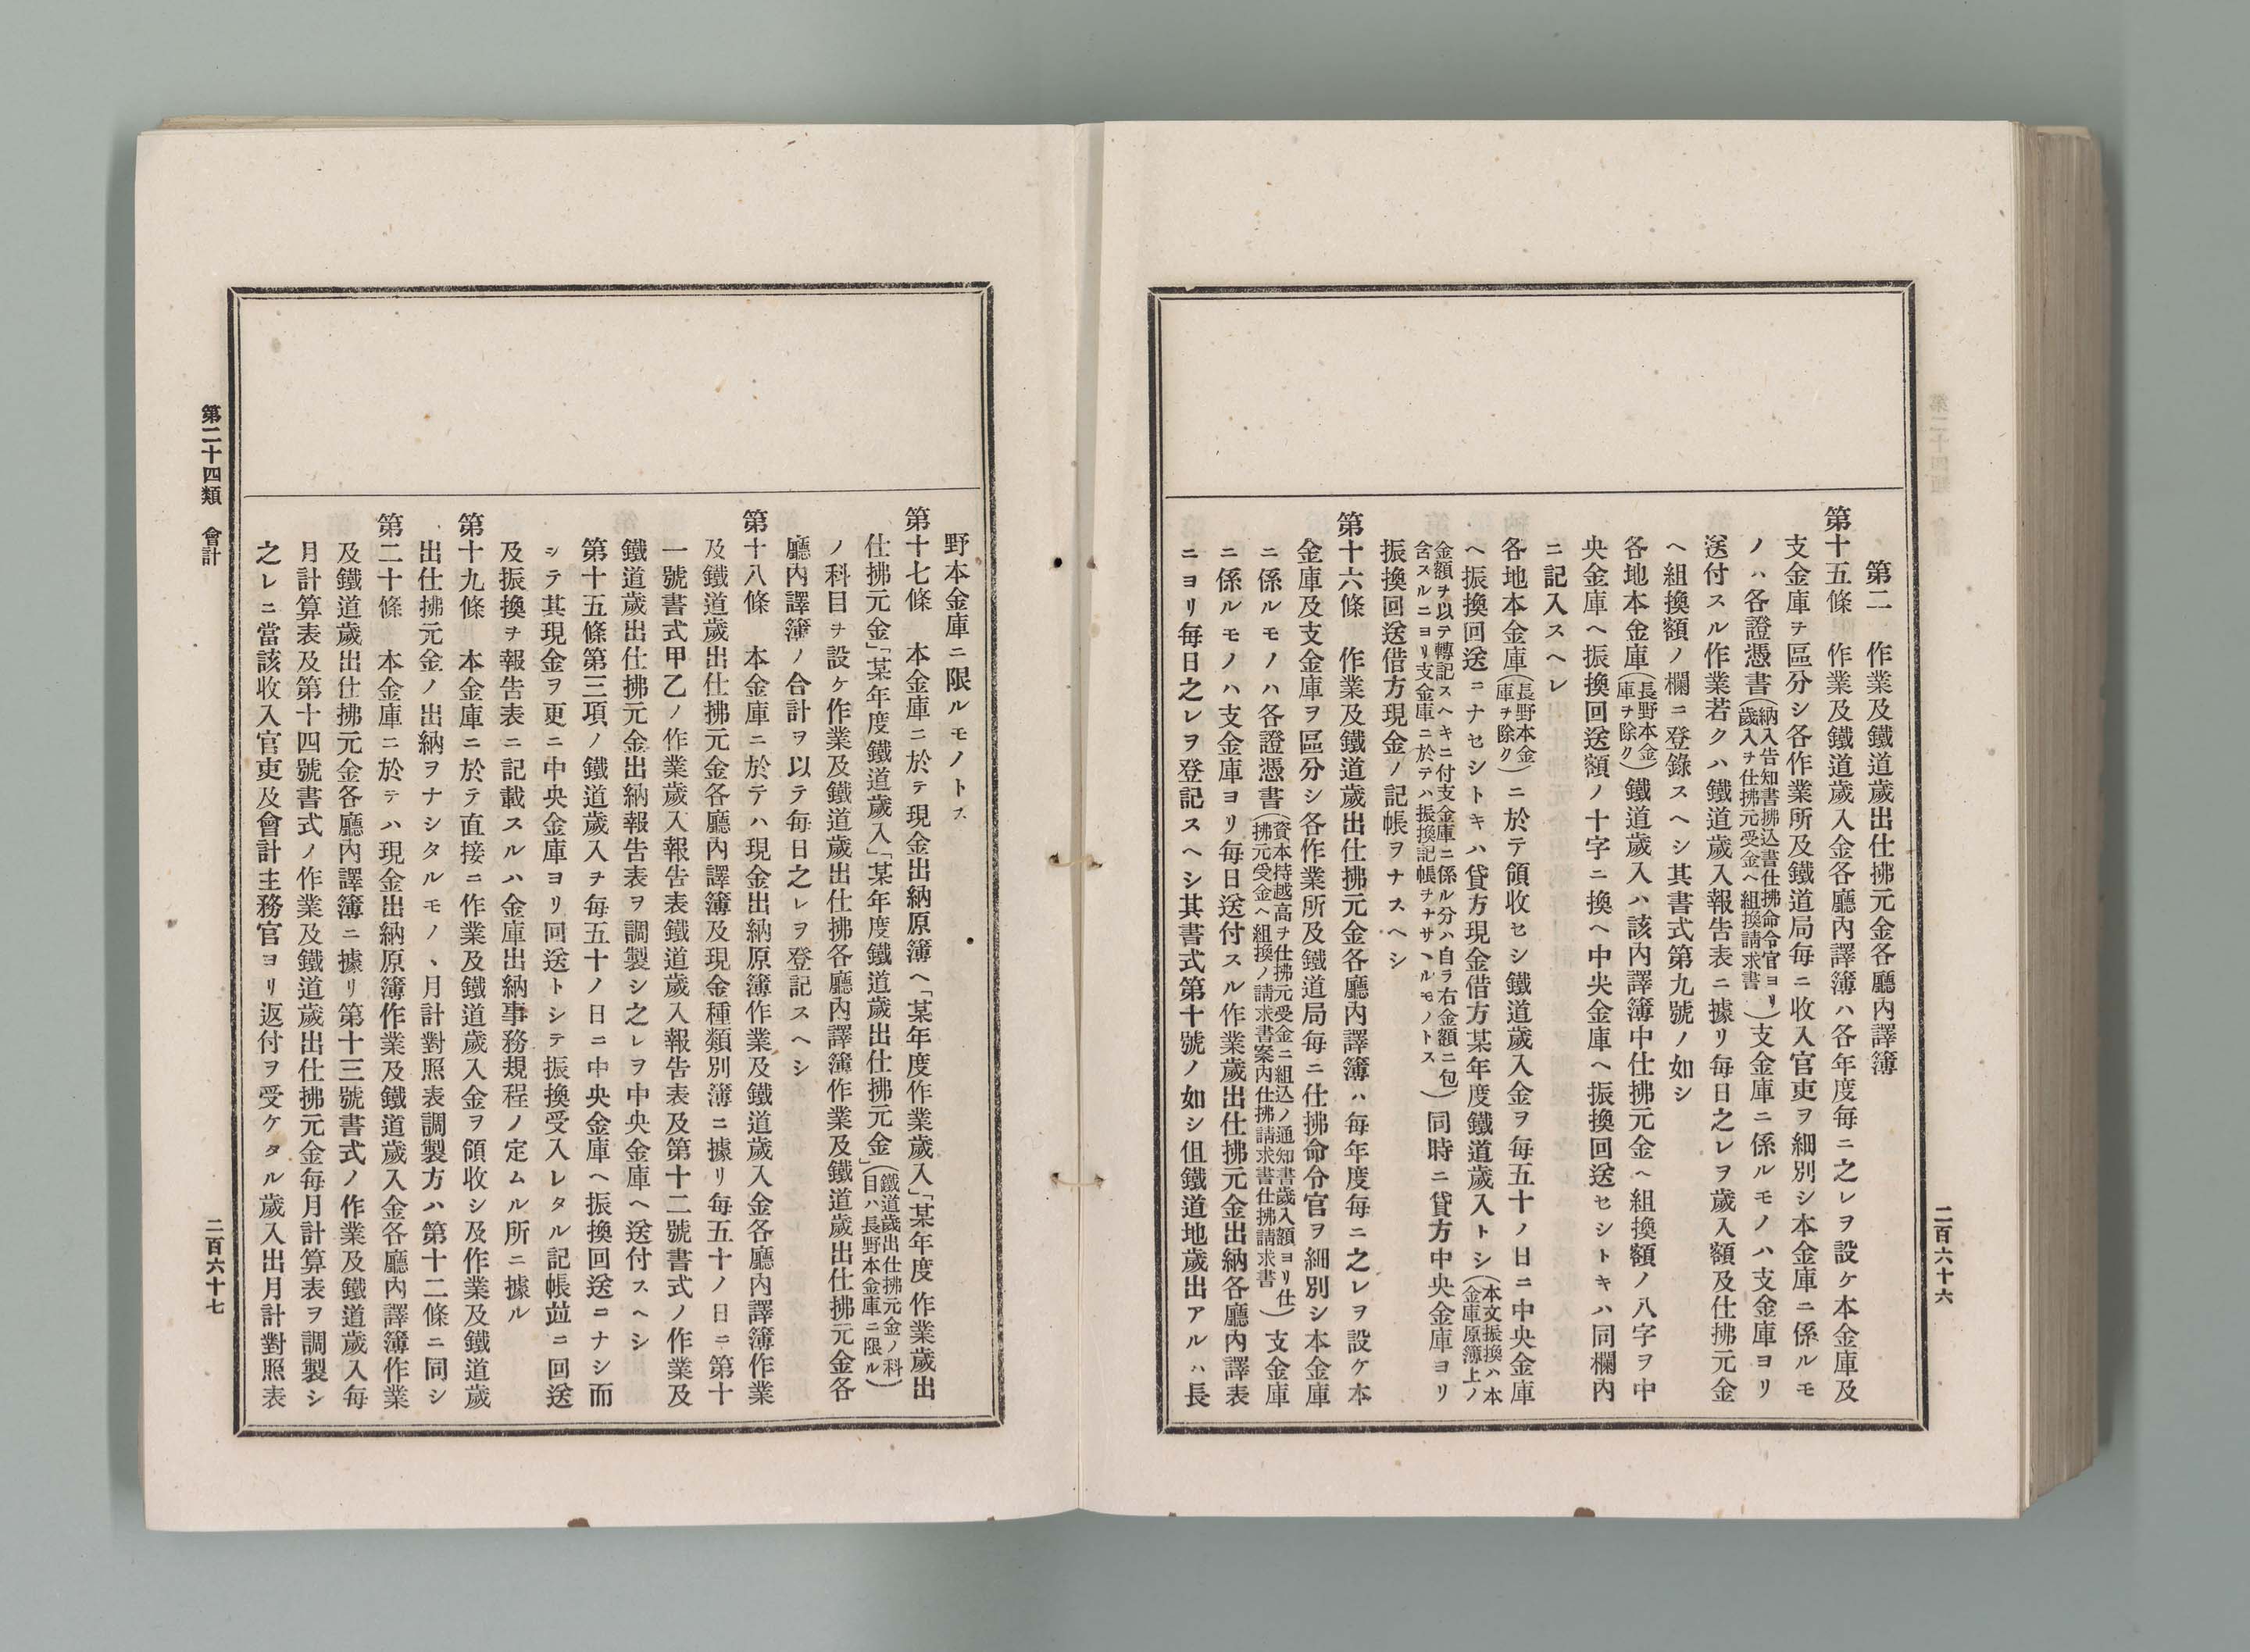 二百六十六
第二　作業及鐵道歲出仕拂元金各廳內譯簿
第十五條　作業及鐵道歲入金各廳內譯簿ハ各年度每ニ之レヲ設ケ本金庫及
支金庫ヲ區分シ各作業所及鐵道局每ニ收入官吏ヲ細別シ本金庫ニ係ルモ
ノハ各證憑書(納入告知書拂込書仕拂命令官ヨリ歲入ヲ仕拂元受金ヘ組換請求書)支金庫ニ係ルモノハ支金庫ヨリ
送付スル作業若クハ鐵道歲入報告表ニ據リ每日之レヲ歲入額及仕拂元金
ヘ組換額ノ欄ニ登錄スヘシ其書式第九號ノ如シ
各地本金庫(長野本金庫ヲ除ク)鐵道歲入ハ該內譯簿中仕拂元金ヘ組換額ノ八字ヲ中
央金庫ヘ振換回送額ノ十字ニ換ヘ中央金庫ヘ振換回送セシトキハ同欄內
ニ記入スヘシ
各地本金庫(長野本金庫ヲ除ク)ニ於テ領收セシ鐵道歲入金ヲ每五十ノ日ニ中央金庫
ヘ振換回送ニナセシトキハ貸方現金借方某年度鐵道歲入トシ(本文振換ハ本金庫原簿上ノ
金額ヲ以テ轉記スヘキニ付支金庫ニ係ル分ハ自ラ右金額ニ包含スルニヨリ支金庫ニ於テハ振換記帳ヲナサヽルモノトス)同時ニ貸方中央金庫ヨリ
振換回送借方現金ノ記帳ヲナスヘシ
第十六條　作業及鐵道歲出仕拂元金各廳內譯簿ハ每年度每ニ之レヲ設ケ本
金庫及支金庫ヲ區分シ各作業所及鐵道局每ニ仕拂命令官ヲ細別シ本金庫
ニ係ルモノハ各證憑書(資本持越高ヲ仕拂元受金ニ組込ノ通知書歲入額ヨリ仕拂元受金ヘ組換ノ請求書案內仕拂請求書仕拂請求書)支金庫
ニ係ルモノハ支金庫ヨリ每日送付スル作業歲出仕拂元金出納各廳內譯表
ニヨリ每日之レヲ登記スヘシ其書式第十號ノ如シ但鐵道地歲出アルハ長
野本金庫ニ限ルモノトス
第十七條　本金庫ニ於テ現金出納原簿ヘ「某年度作業歲入」「某年度作業歲出
仕拂元金」「某年度鐵道歲入」「某年度鐵道歲出仕拂元金」(鐵道歲出仕拂元金ノ科目ハ長野本金庫ニ限ル)
ノ科目ヲ設ケ作業及鐵道歲出仕拂各廳內譯簿作業及鐵道歲出仕拂元金各
廳內譯簿ノ合計ヲ以テ每日之レヲ登記スヘシ
第十八條　本金庫ニ於テハ現金出納原簿作業及鐵道歲入金各廳內譯簿作業
及鐵道歲出仕拂元金各廳內譯簿及現金種類別簿ニ據リ每五十ノ日ニ第十
一號書式甲乙ノ作業歲入報告表鐵道歲入報告表及第十二號書式ノ作業及
鐵道歲出仕拂元金出納報告表ヲ調製シ之レヲ中央金庫ヘ送付スヘシ
第十五條第三項ノ鐵道歲入ヲ每五十ノ日ニ中央金庫ヘ振換回送ニナシ而
シテ其現金ヲ更ニ中央金庫ヨリ回送トシテ振換受入レタル記帳並ニ回送
及振換ヲ報告表ニ記載スルハ金庫出納事務規程ノ定ムル所ニ據ル
第十九條　本金庫ニ於テ直接ニ作業及鐵道歲入金ヲ領收シ及作業及鐵道歲
出仕拂元金ノ出納ヲナシタルモノヽ月計對照表調製方ハ第十二條ニ同シ
第二十條　本金庫ニ於テハ現金出納原簿作業及鐵道歲入金各廳內譯簿作業
及鐵道歲出仕拂元金各廳內譯簿ニ據リ第十三號書式ノ作業及鐵道歲入每
月計算表及第十四號書式ノ作業及鐵道歲出仕拂元金每月計算表ヲ調製シ
之レニ當該收入官吏及會計主務官ヨリ返付ヲ受ケタル歲入出月計對照表
第二十四類　會計
二百六十七